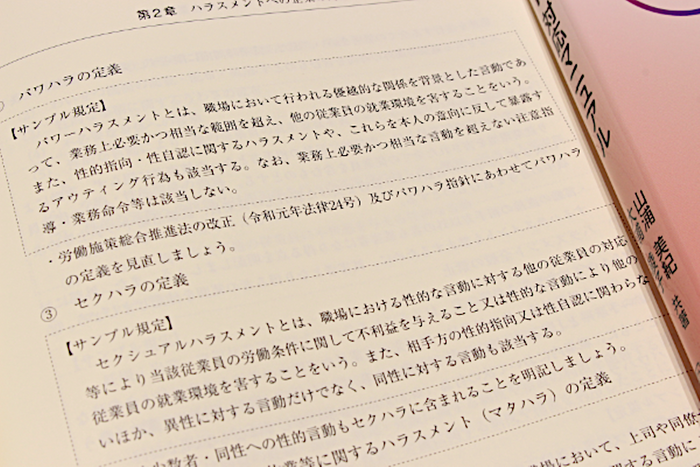 第2章 ハラスメントへの
パワハラの定義
【サンプル規定】
パワーハラスメントとは、職場において行われる優越的な関係を背景とした言動であ
って、業務上必要かつ相当な範囲を超え、他の従業員の就業環境を害することをいう。
また、性的指向・性自認に関するハラスメントや、これらを本人の意向に反して暴露す
るアウティング行為も該当する。なお、業務上必要かつ相当な言動を超えない注意指
導・業務命令等は該当しない。
・労働施策総合推進法の改正（令和元年法律24号）及びパワハラ指針にあわせてパワハラ
の定義を見直しましょう。
③ セクハラの定義
【サンプル規定】
セクシュアルハラスメントとは、職場における性的な言動に対する他の従業員の対応
等により当該従業員の労働条件に関して不利益を与えること又は性的な言動により他の
従業員の就業環境を害することをいう。また、相手方の性的指向又は性自認に関わらな
いほか、異性に対する言動だけでなく、同性に対する言動も該当する。
少数者・同性への性的言動もセクハラに含まれることを明記しましょう。
業等に関するハラスメント（マタハラ）の定義
職場において、上司や同僚
対応マニュアル
山浦 美紀
共著